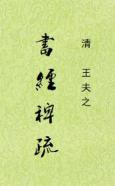 清 王夫之
書經稗疏